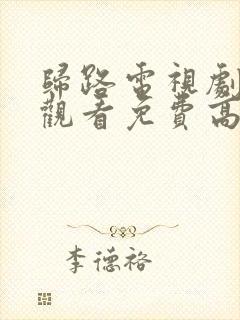 歸路電視劇
觀看免費高
李德裕